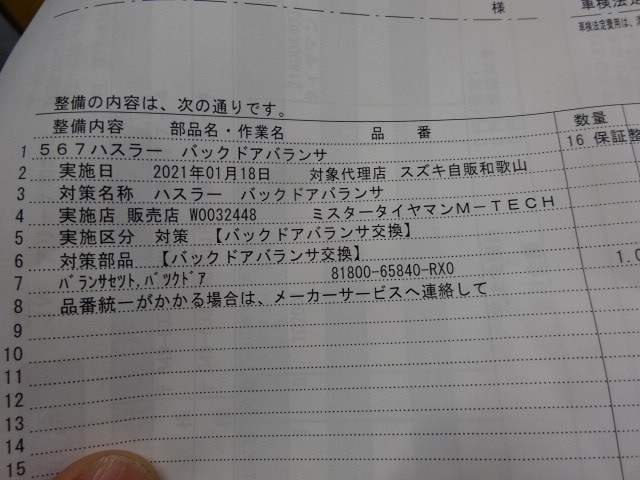 様
車検法定
車検法定費用は、
整備の内容は、次の通りです。
整備内容 部品名・作業名 品 番 数量
1 567ハスラー バックドアバランサ 16 保証整
2 実施日 2021年01月18日 対象代理店 スズキ自販和歌山
3 対策名称 ハスラー バックドアバランサ
4 実施店 販売店 W0032448 ミスタータイヤマンM-TECH
5 実施区分 対策 【バックドアバランサ交換】
6 対策部品 【バックドアバランサ交換】
7 バランサセット,バックドア 81800-65840-RX0 1.0
8 品番統一がかかる場合は、メーカーサービスへ連絡して
9
10
11
12
13
14
15